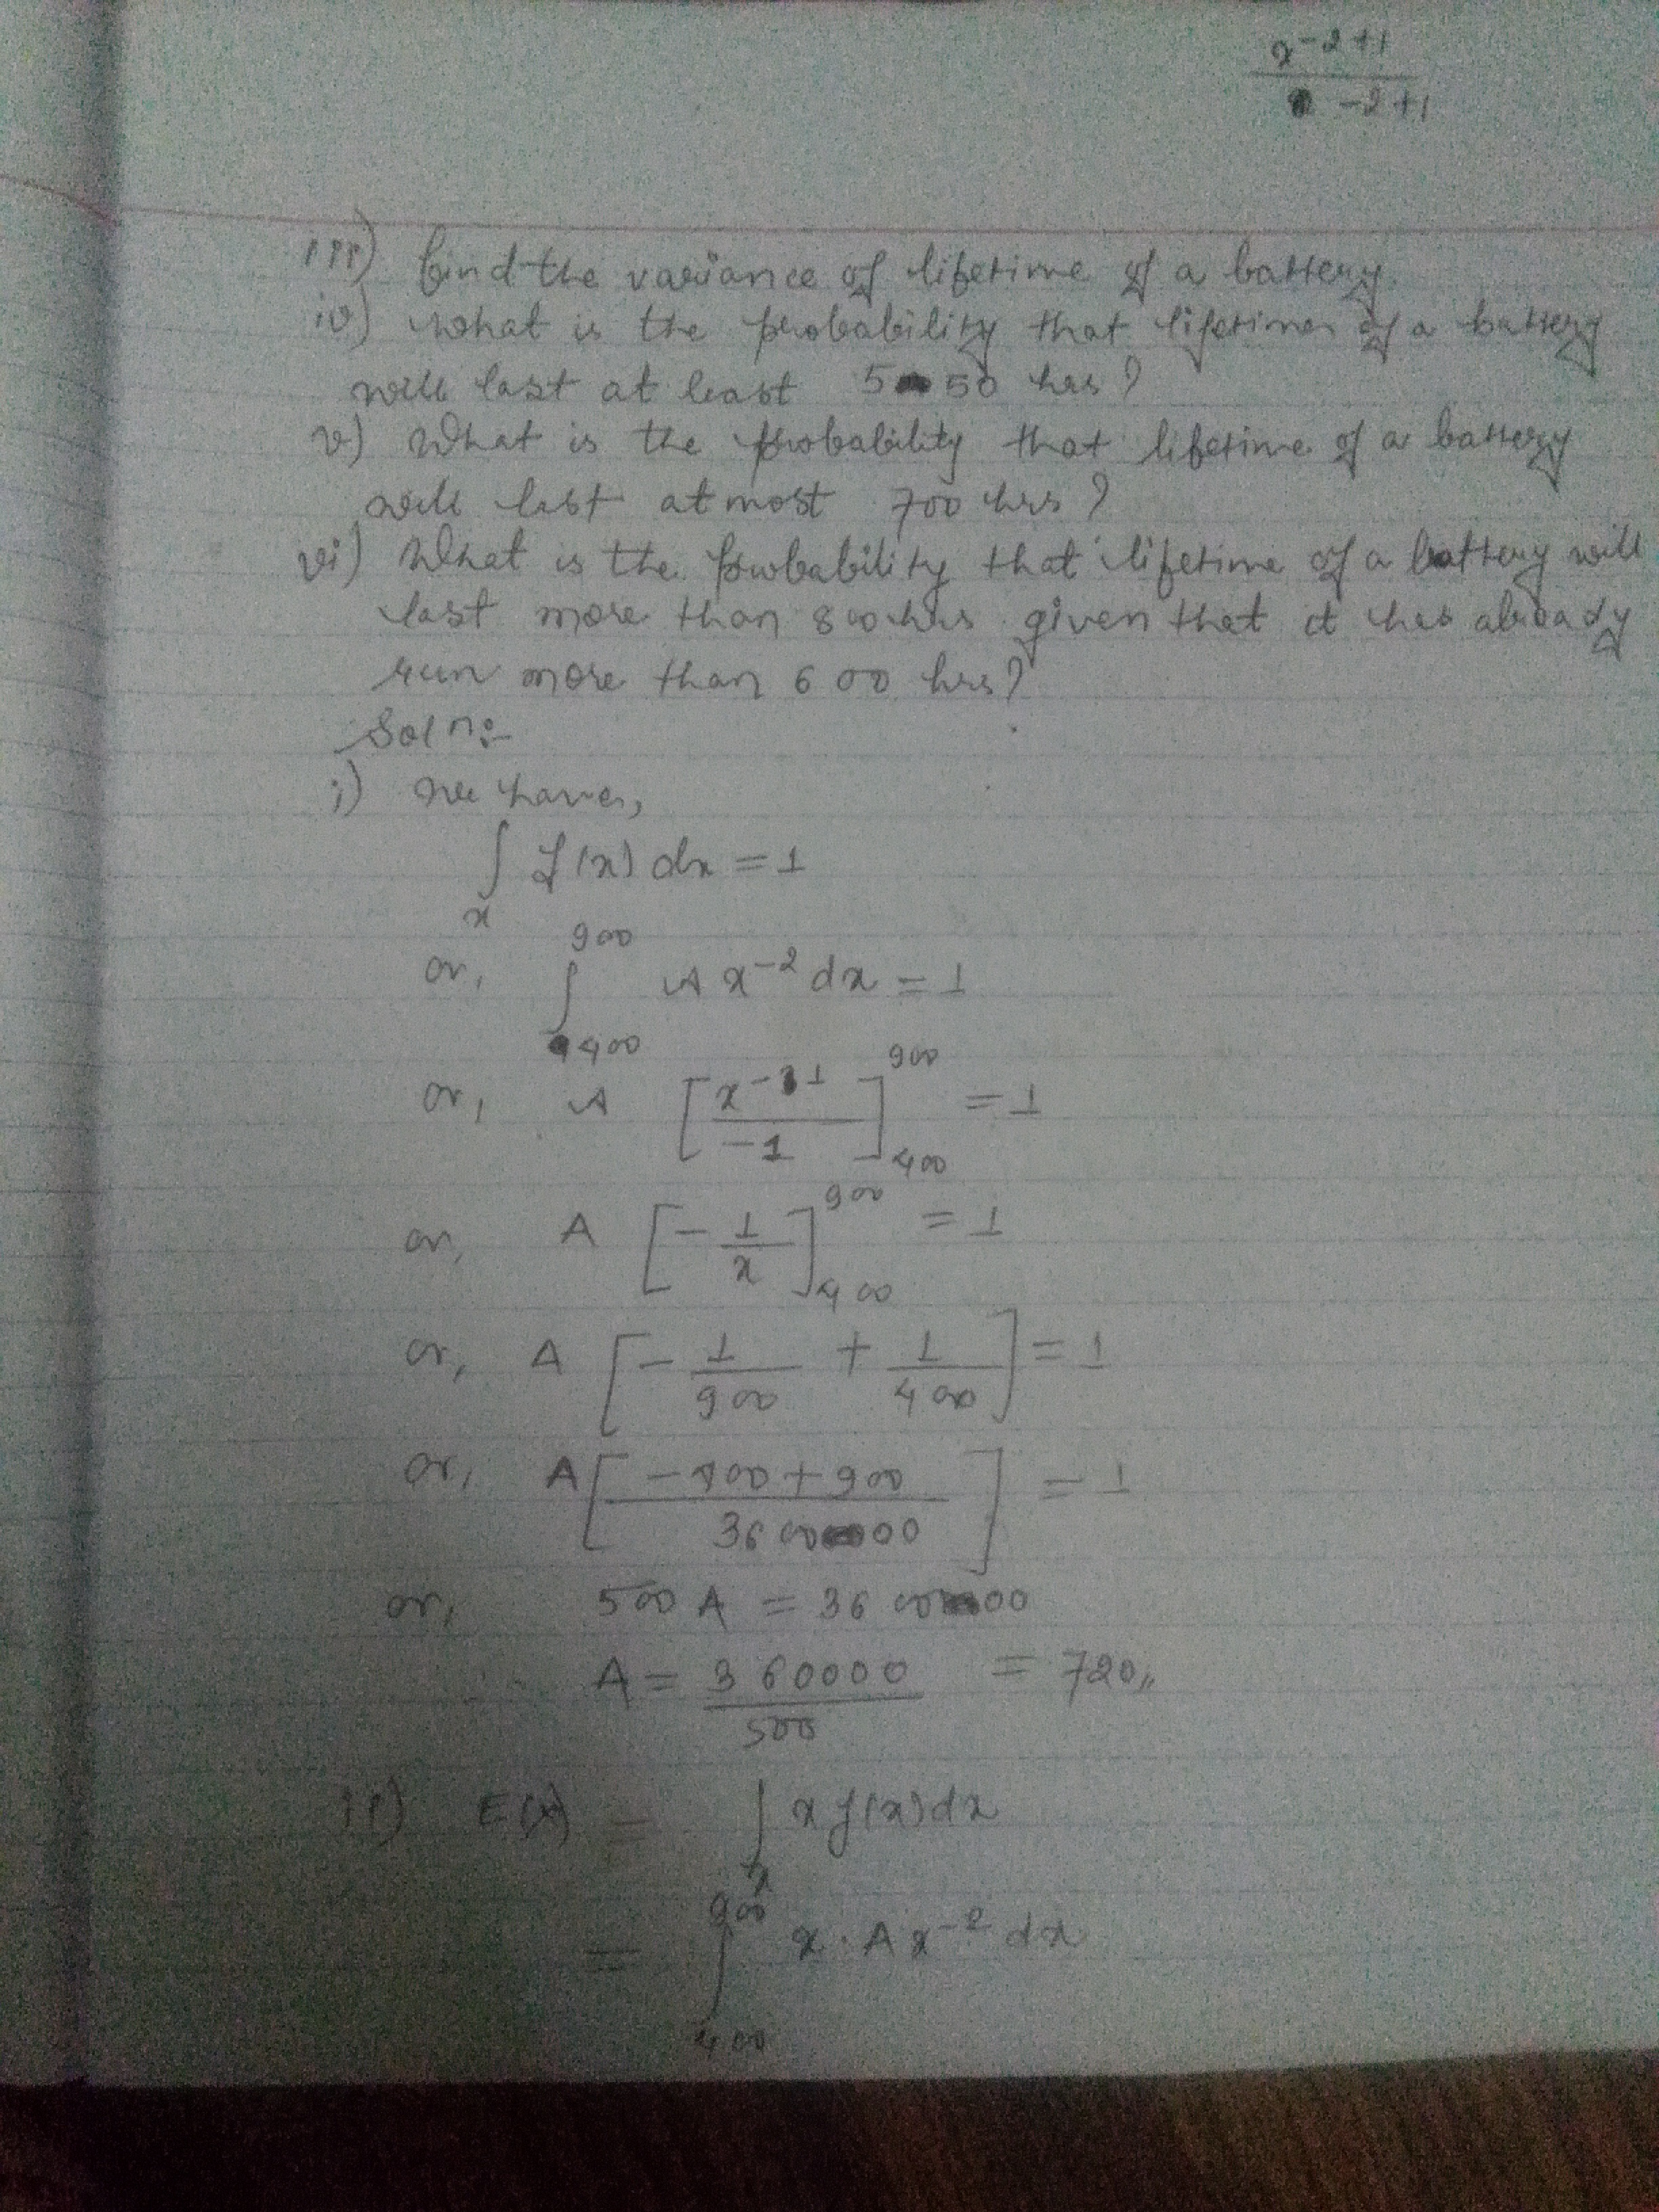 x^-2+1
-2+1
iii) find the variance of lifetime of a battery.
iv) What is the probability that lifetime of a battery
will last at least 550 hrs?
v) What is the probability that lifetime of a battery
will last atmost 700 hrs?
vi) What is the probability that lifetime of a battery will
last more than 800 hrs given that it has already
run more than 600 hrs?
Soln:-
i) We have,
∫x f(x) dx = 1
or, ∫400^900 A x^-2 dx = 1
or, A [x^-1 / -1]400^900 = 1
or, A [- 1/x]400^900 = 1
or, A [- 1/900 + 1/400] = 1
or, A [-400+900 / 360000] = 1
or, 500 A = 360000
A = 360000/500 = 720,,
ii) E(X) = ∫x x f(x) dx
= ∫400^900 x . A x^-2 dx